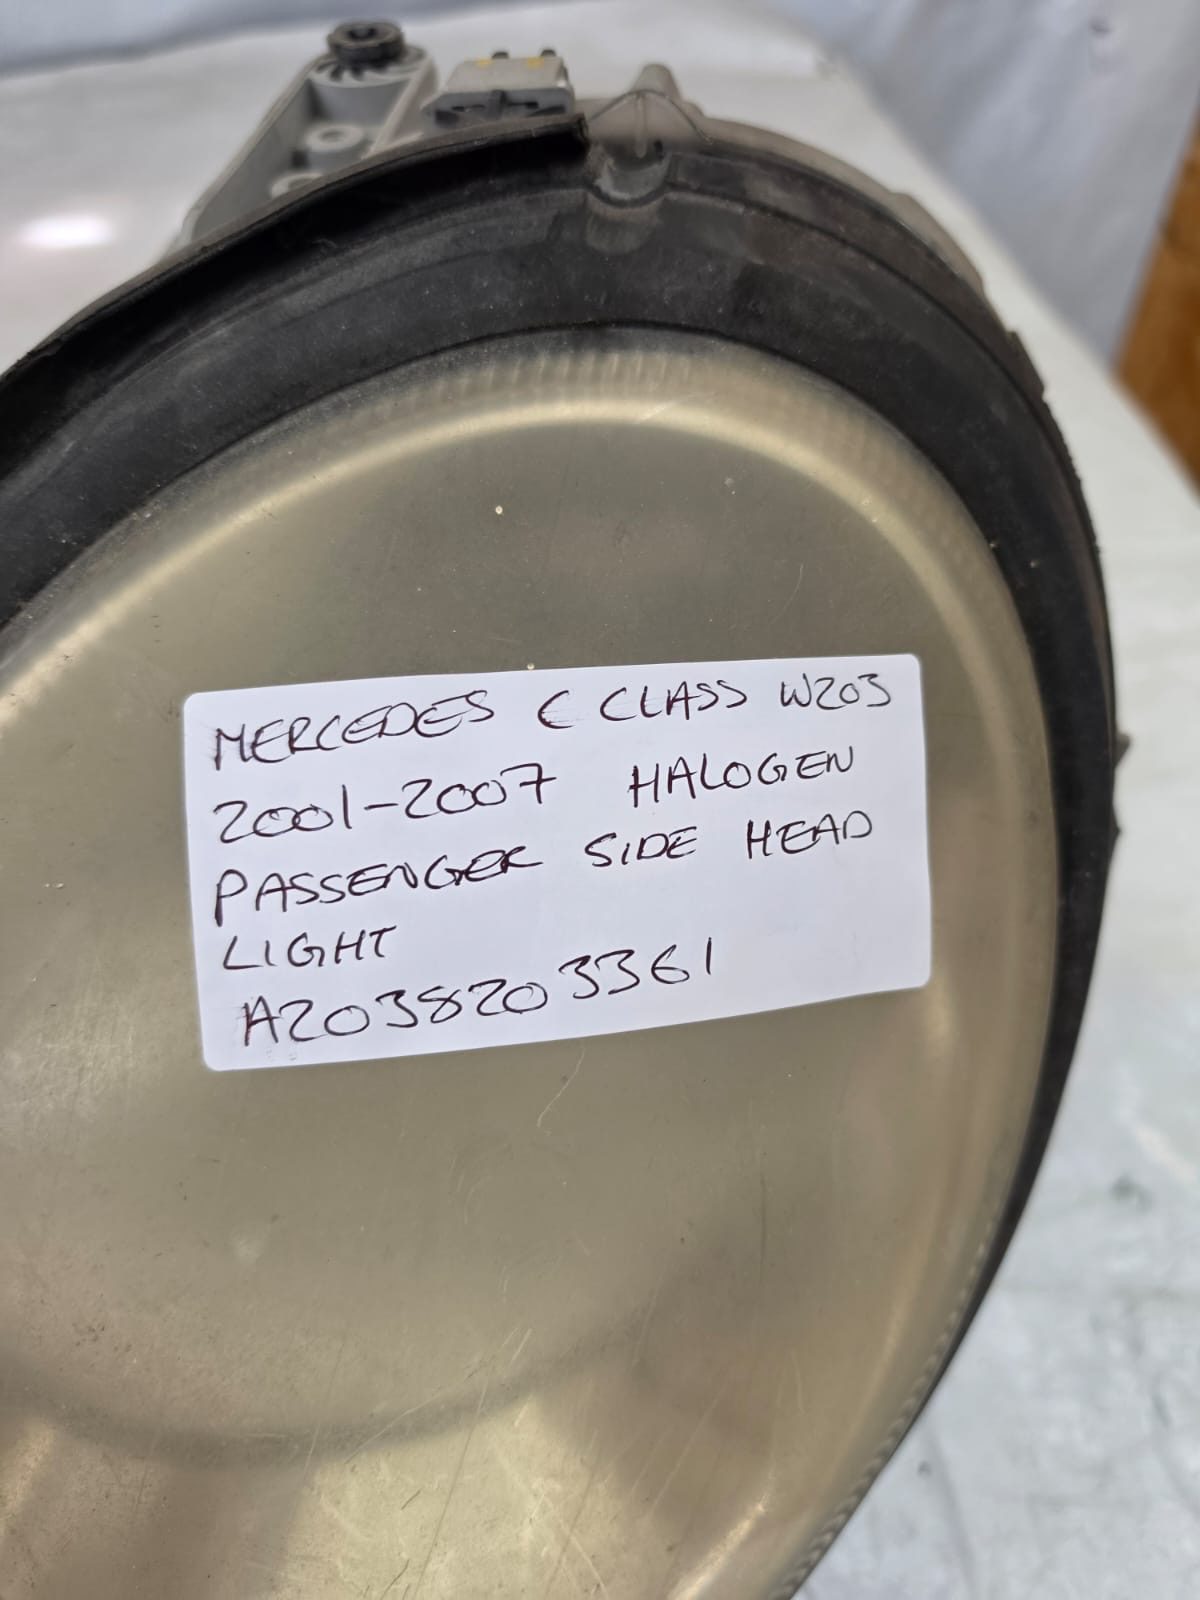 MERCEDES C CLASS W203
2001-2007 HALOGEN
PASSENGER SIDE HEAD
LIGHT
A2038203361